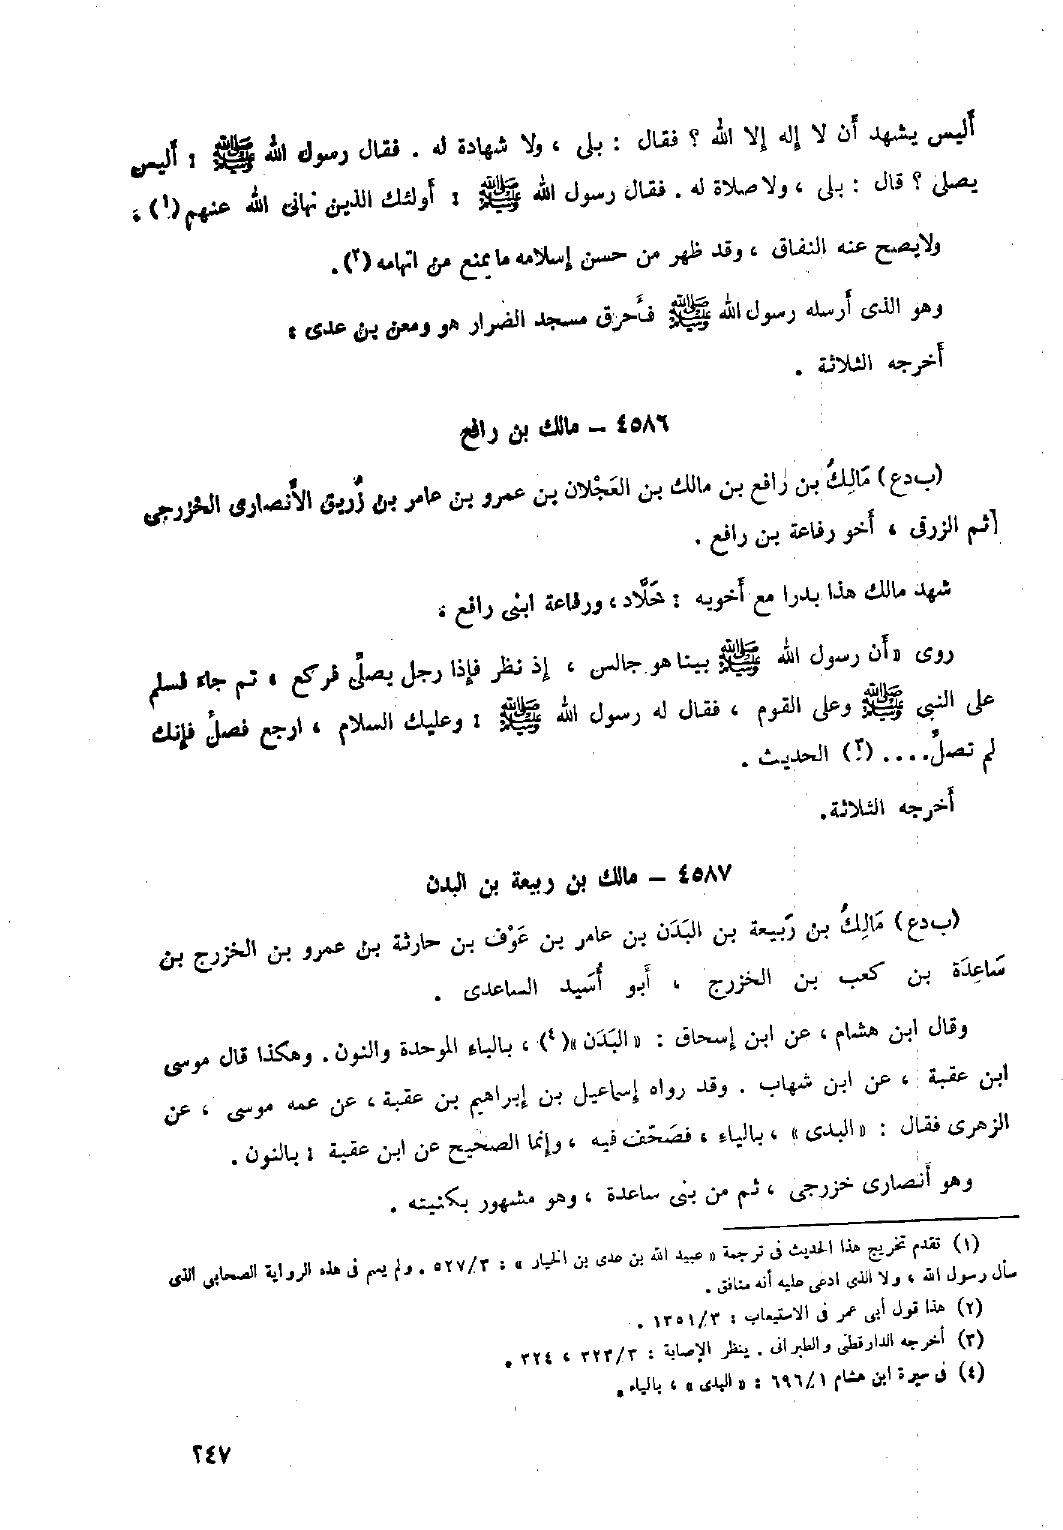 أَليس يشهد أَن لا إله إلا الله ؟ فقال : بلى ، ولا شهادة له . فقال رسول الله ﷺ : أَليس
يصلى ؟ قال : بلى ، ولا صلاة له . فقال رسول الله ﷺ : أَولئك الذين نهانى الله عنهم (١) .
ولا يصح عنه النفاق ، وقد ظهر من حسن إسلامه ما يمنع من اتهامه (٢) .
وهو الذى أَرسله رسول الله ﷺ فأَحرق مسجد الضرار هو ومعن بن عدى :
أَخرجه الثلاثة .
٤٥٨٦ - مالك بن رافع
(ب د ع) مَالِكُ بن رَافع بن مالك بن العَجْلان بن عمرو بن عامر بن زُريق الأَنصارى الخزرجى
ثم الزرقى ، أَخو رفاعة بن رافع .
شهد مالك هذا بدرا مع أَخويه : خَلَّاد ، ورفاعة ابنى رافع .
روى «أَن رسول الله ﷺ بينا هو جالس ، إذ نظر فإذا رجل يصلِّى فركع ، ثم جاء فسلم
على النبى ﷺ وعلى القوم ، فقال له رسول الله ﷺ : وعليك السلام ، ارجع فصلِّ فإنك
لم تصلِّ .... (٣) الحديث .
أَخرجه الثلاثة .
٤٥٨٧ - مالك بن ربيعة بن البدن
(ب د ع) مَالِكُ بن رَبيعة بن البَدَن بن عامر بن عَوْف بن حارثة بن عمرو بن الخزرج بن
سَاعِدَة بن كعب بن الخزرج ، أَبو أُسَيد الساعدى .
وقال ابن هشام ، عن ابن إسحاق : «البَدَن»(٤) ، بالباء الموحدة والنون . وهكذا قال موسى
ابن عقبة ، عن ابن شهاب . وقد رواه إسماعيل بن إبراهيم بن عقبة ، عن عمه موسى ، عن
الزهرى فقال : «البدى» ، بالياء ، فصَحّف فيه ، وإنما الصحيح عن ابن عقبة : بالنون .
وهو أَنصارى خزرجى ، ثم من بنى ساعدة ، وهو مشهور بكنيته .
(١) تقدم تخريج هذا الحديث فى ترجمة «عبيد الله بن عدى بن الخيار» : ٥٢٧/٣ . ولم يسم فى هذه الرواية الصحابى الذى
سأل رسول الله ، ولا الذى ادعى عليه أنه منافق .
(٢) هذا قول أبى عمر فى الاستيعاب : ١٣٥١/٣ .
(٣) أخرجه الدارقطنى والطبرانى . ينظر الإصابة : ٣٢٣/٣ ، ٣٢٤ .
(٤) فى سيرة ابن هشام ٦٩٦/١ : «البدى» ، بالياء .
٢٤٧